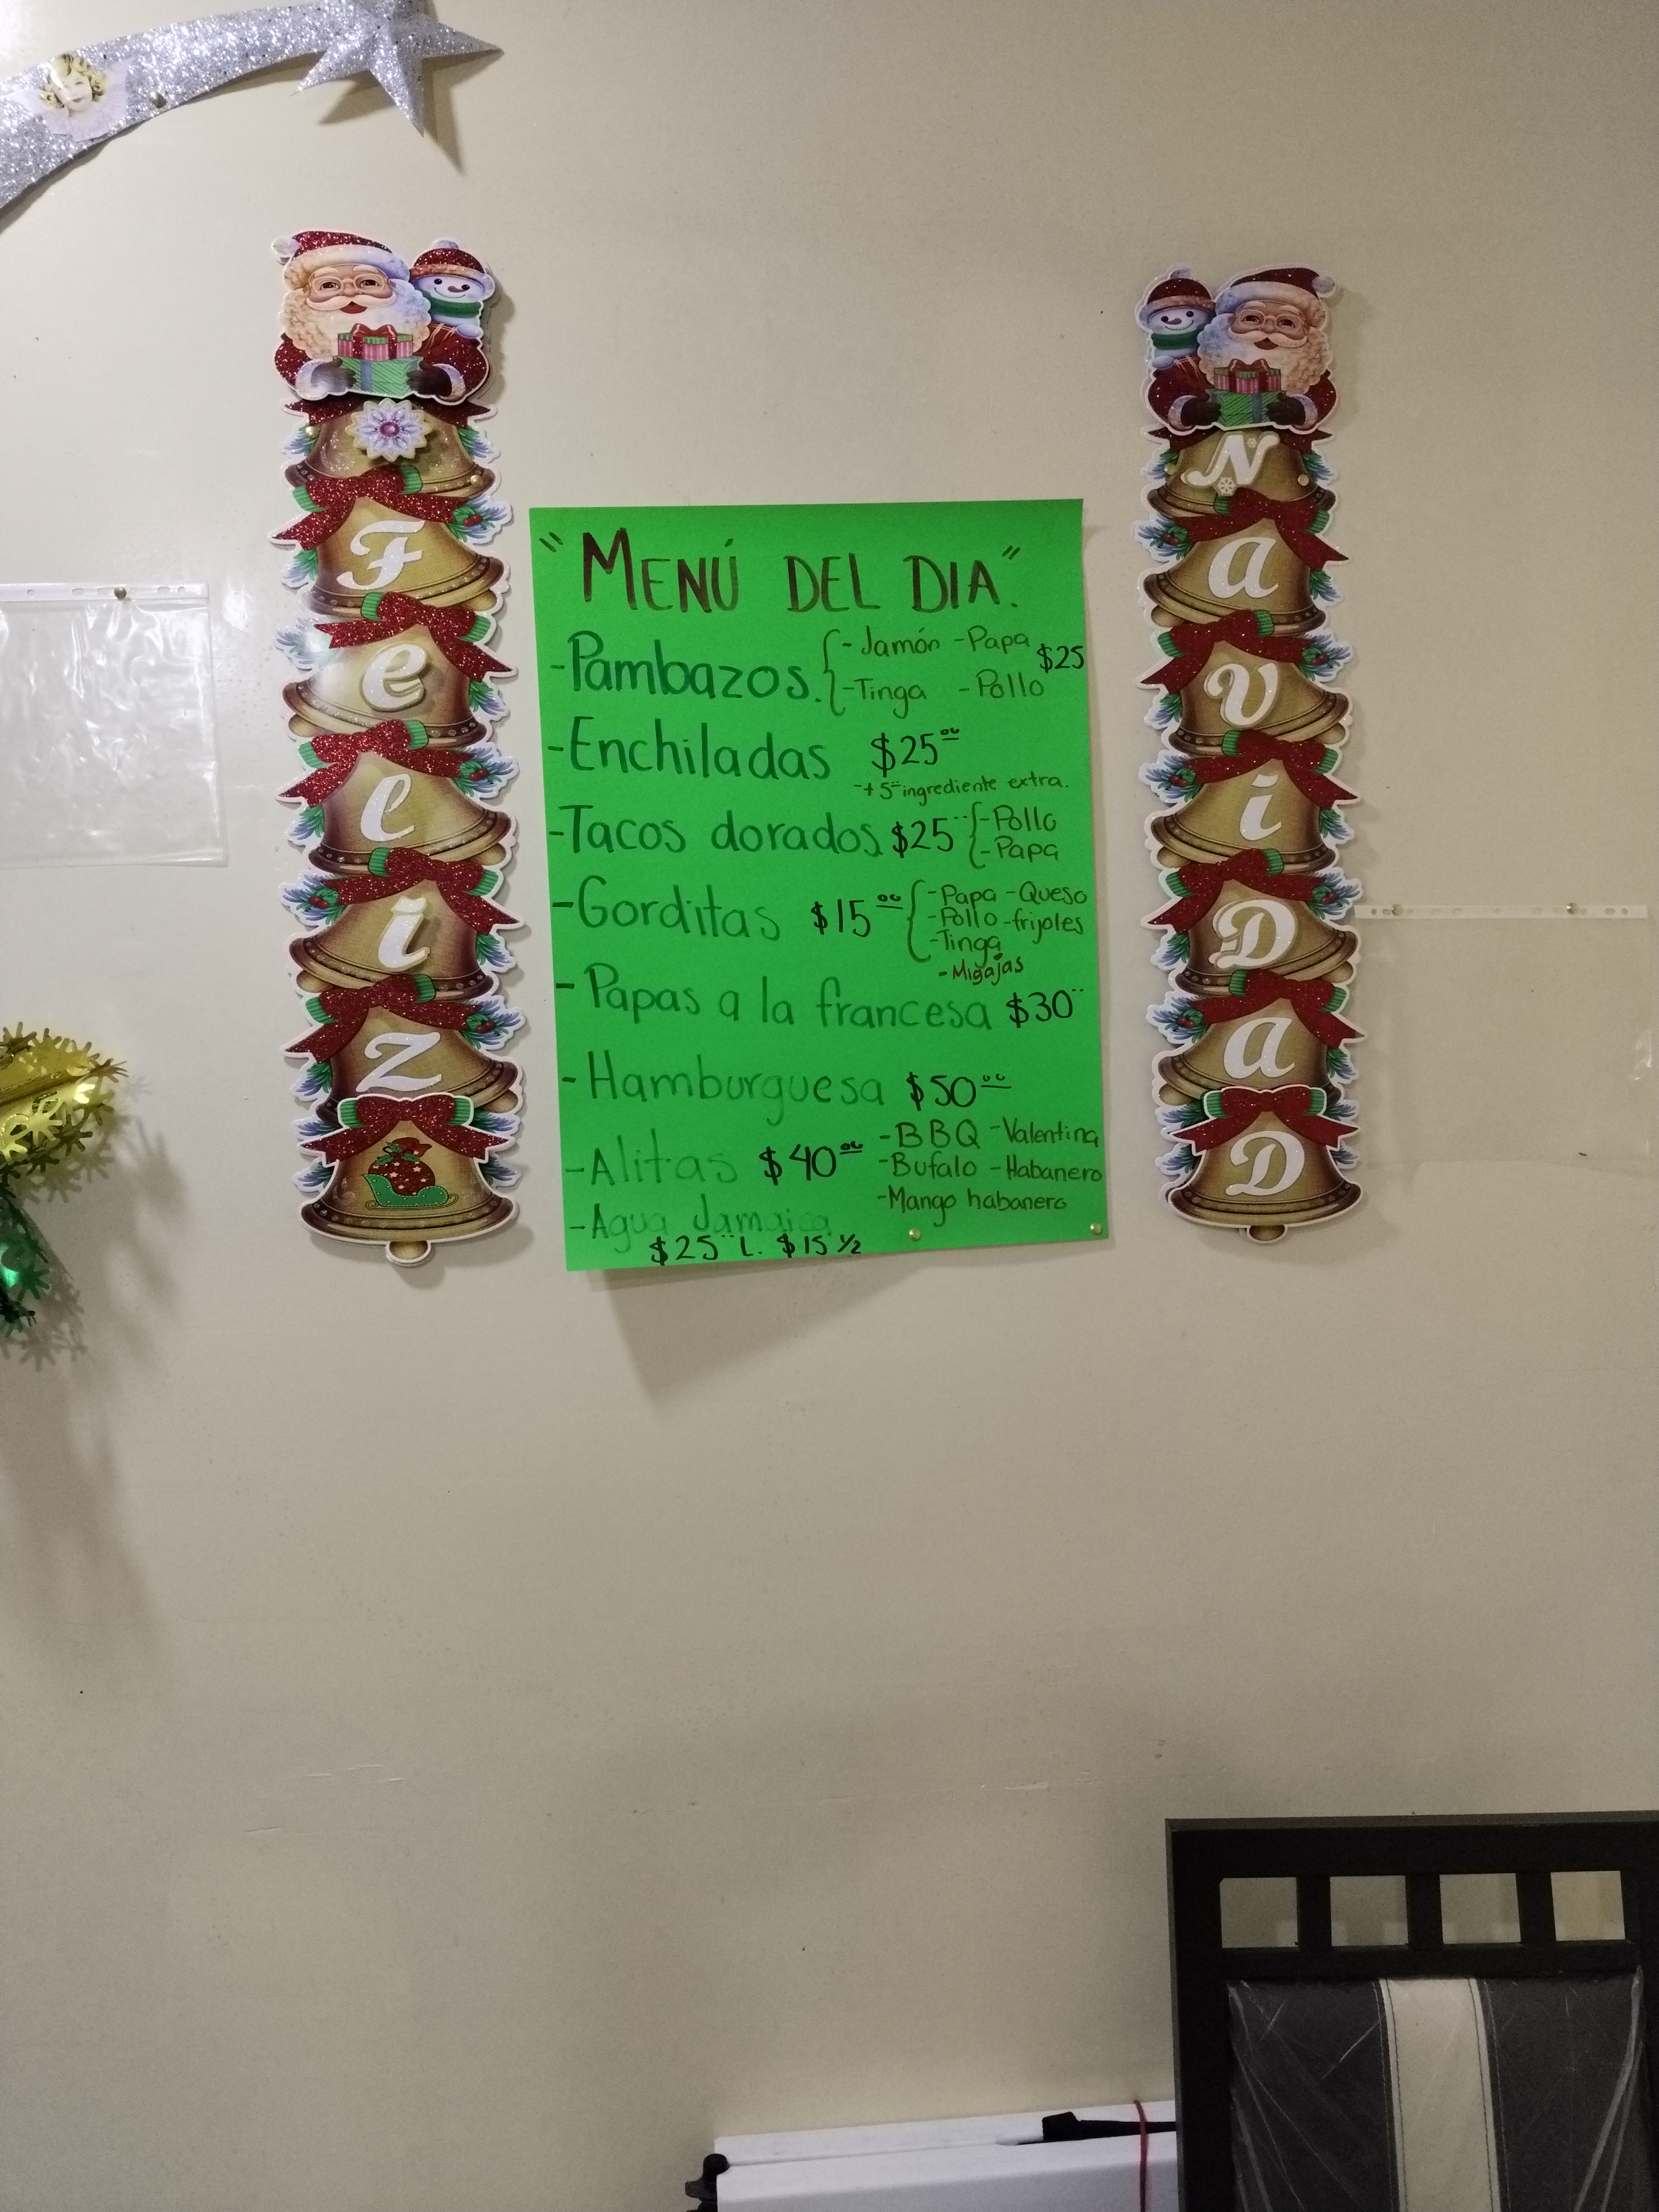 Feliz
"MENÚ DEL DIA".
-Pambazos. -Jamón -Papa $25
-Tinga -Pollo
-Enchiladas $25.00
-+5.00 ingrediente extra.
-Tacos dorados $25.. -Pollo
-Papa
-Gorditas $15.00 -Papa -Queso
-Pollo -frijoles
-Tinga
-Migajas
-Papas a la francesa $30..
-Hamburguesa $50.00
-Alitas $40.00 -BBQ -Valentina
-Bufalo -Habanero
-Mango habanero
-Agua Jamaica
$25.. L. $15 1/2
NaviDaD